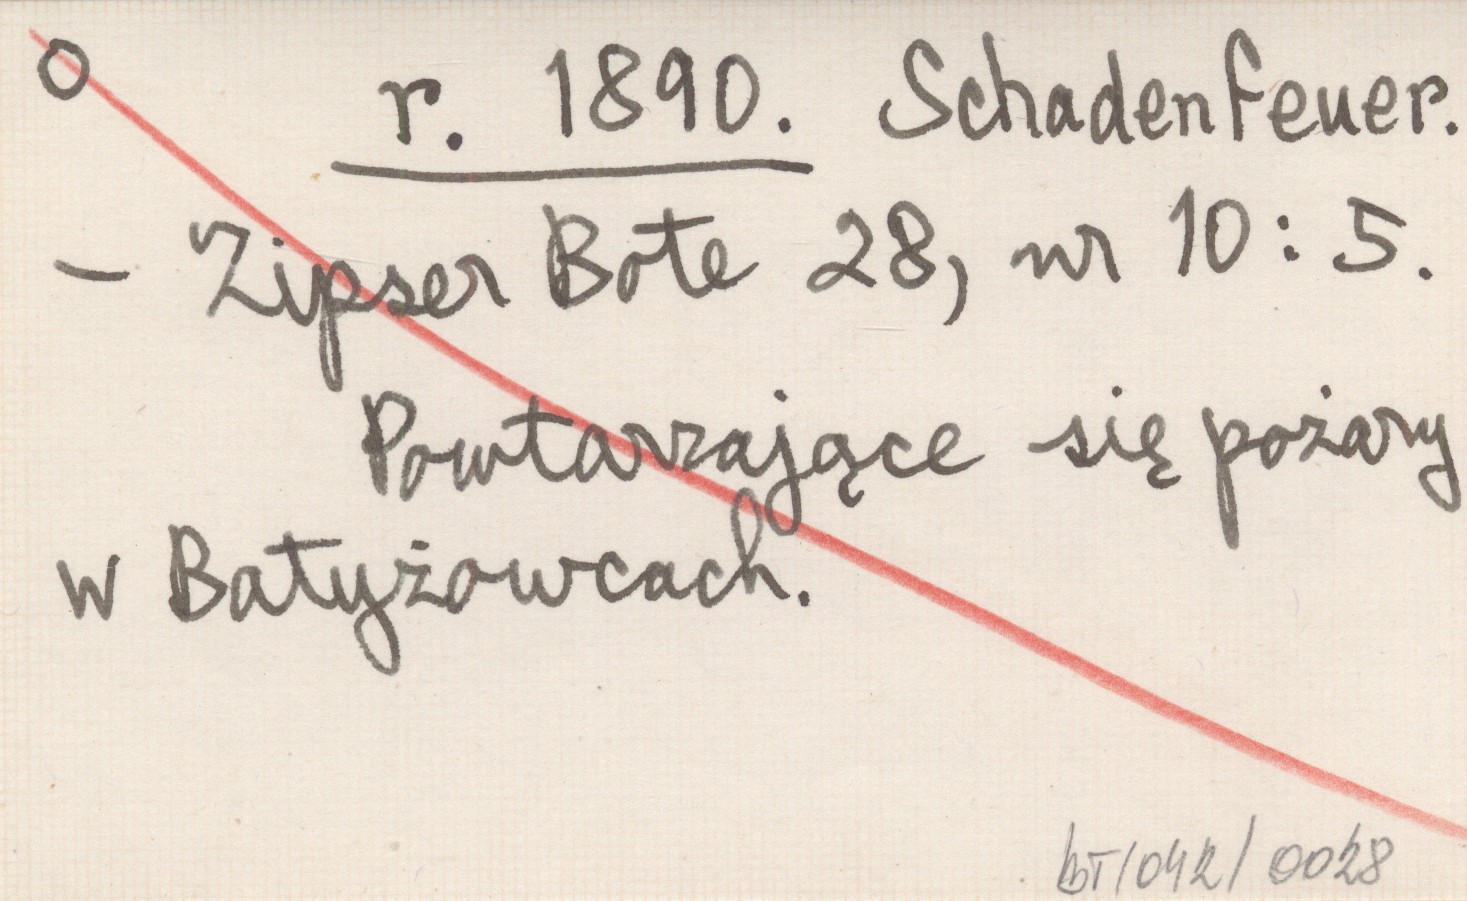 o r. 1890. Schadenfeuer.
- Zipser Bote 28, nr 10 : 5.
Powtarzające się pożary
w Batyżowcach.
BT/042/0028